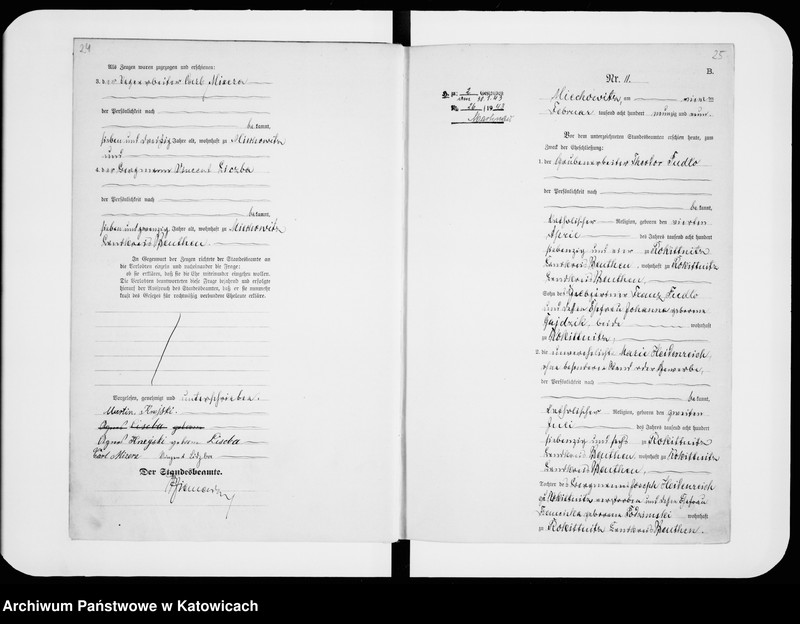 24
Als Zeugen waren zugezogen und erschienen:
3. der Carl Misera
der Persönlichkeit nach
be kannt,
sieben und dreißig Jahre alt, wohnhaft zu Miechowitz
und
4. der Bergmann Vincent Liczba
der Persönlichkeit nach
be kannt,
sieben und zwanzig Jahre alt, wohnhaft zu Miechowitz
Landkreis Beuthen.
In Gegenwart der Zeugen richtete der Standesbeamte an
die Verlobten einzeln und nacheinander die Frage:
ob sie erklären, daß sie die Ehe miteinander eingehen wollen.
Die Verlobten beantworteten diese Frage bejahend und erfolgte
hierauf der Ausspruch des Standesbeamten, daß er sie nunmehr
kraft des Gesetzes für rechtmäßig verbundene Eheleute erkläre.
Vorgelesen, genehmigt und unterschrieben.
Martin
Agnes Liscba geboren
Agnes geboren Liscba
Carl Misera
Der Standesbeamte.
25
B.
Nr. 11.
Miechowitz, am vier ten
Februar tausend acht hundert neunzig und neun.
Vor dem unterzeichneten Standesbeamten erschien heute, zum
Zweck der Eheschließung:
1. der Grubenarbeiter Theodor Fudlo
der Persönlichkeit nach
be kannt,
katholischer Religion, geboren den vierten
April des Jahres tausend acht hundert
siebenzig und vier zu Rokittnitz
Landkreis Beuthen, wohnhaft zu Rokittnitz
Landkreis Beuthen,
Sohn des Franz Fudlo
und dessen Ehefrau Johanna geborene
Gajdzik, beide wohnhaft
zu Rokittnitz,
2. die unverehelichte Marie Heidenreich,
ohne besonderen Stand oder Gewerbe,
der Persönlichkeit nach
be kannt,
katholischer Religion, geboren den zweiten
Juli des Jahres tausend acht hundert
siebenzig und sechs zu Rokittnitz
Landkreis Beuthen, wohnhaft zu Rokittnitz
Landkreis Beuthen,
Tochter des Bergmanns Joseph Heidenreich
zu Rokittnitz verstorben und dessen Ehefrau
Franziska geborene wohnhaft
zu Rokittnitz Landkreis Beuthen.
Archiwum Państwowe w Katowicach